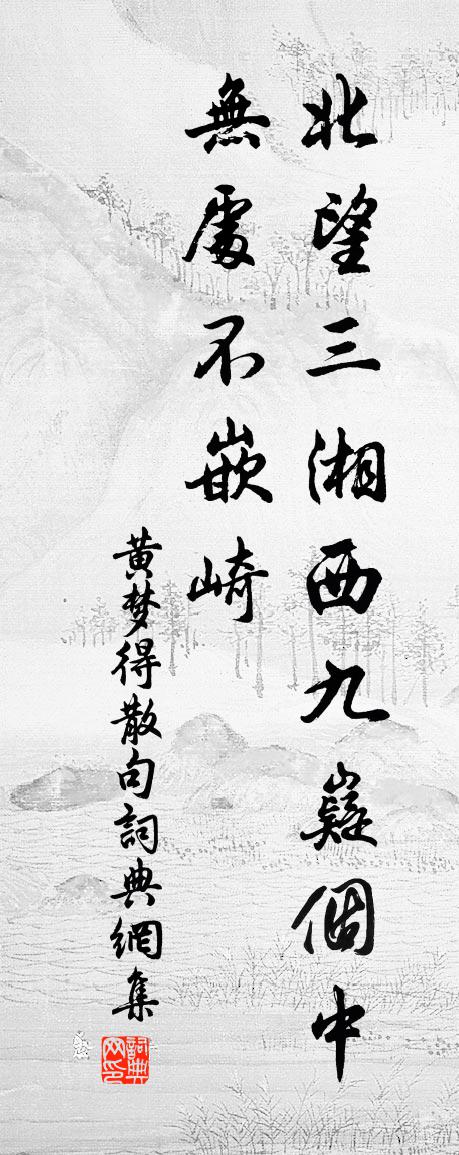 北望三湘西九嶷個中
無處不嵚崎
黄梦得散句詞典網集
詞典网印